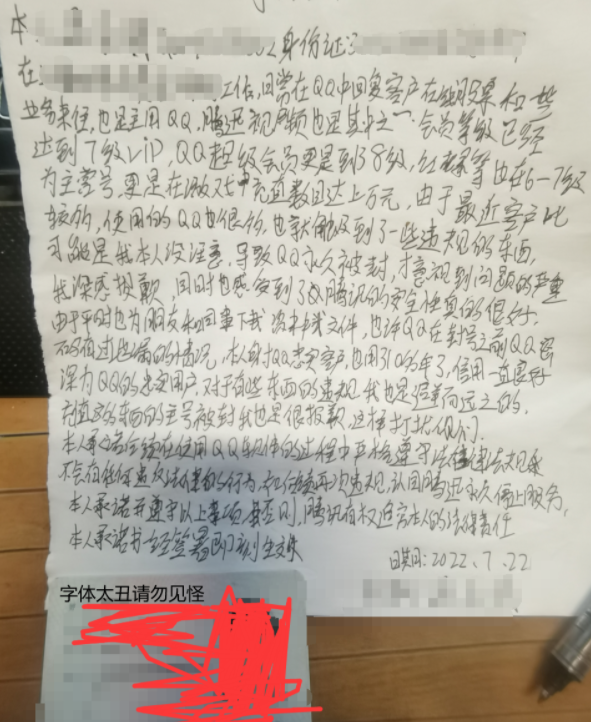 本
身份证:
在
工作,日常在QQ中回复客户在线
业务来往,也是主用QQ,腾迅视频也是其中之一.会员等级已经
达到7级VIP,QQ超级会员更是到8级,红 等也在6-7级
为主常号,更是在游戏中充值数目达上万元,由于最近客户比
较多,使用的QQ也很多,也就触及到了一些违规的东西,
可能是我本人没注意,导致QQ永久被封,才意视到问题的严重
我深感抱歉,同时也感受到了 腾讯的安全性真的很好.
由于平时也为朋友和同事下载 文件,也许QQ在封号之前QQ密
码有过 的情况,本人 QQ忠实客户,也用了10多年了,信用一直良好
深为QQ的忠实用户,对于有些东西的违规 我也是避而远之的,
充值 的东西的主号被封我也是很抱歉,这样打扰你们.
本人承诺在续在使用QQ软件的过程中严格遵守法律法规
不会在任何违反法律的行为,如 再次违规,认同腾迅永久停止服务,
本人承诺并遵守以上事项,否则,腾讯有权追究本人的法律责任
本人承诺书一经签署即刻生效
日期:2022、7、22
字体太丑请勿见怪